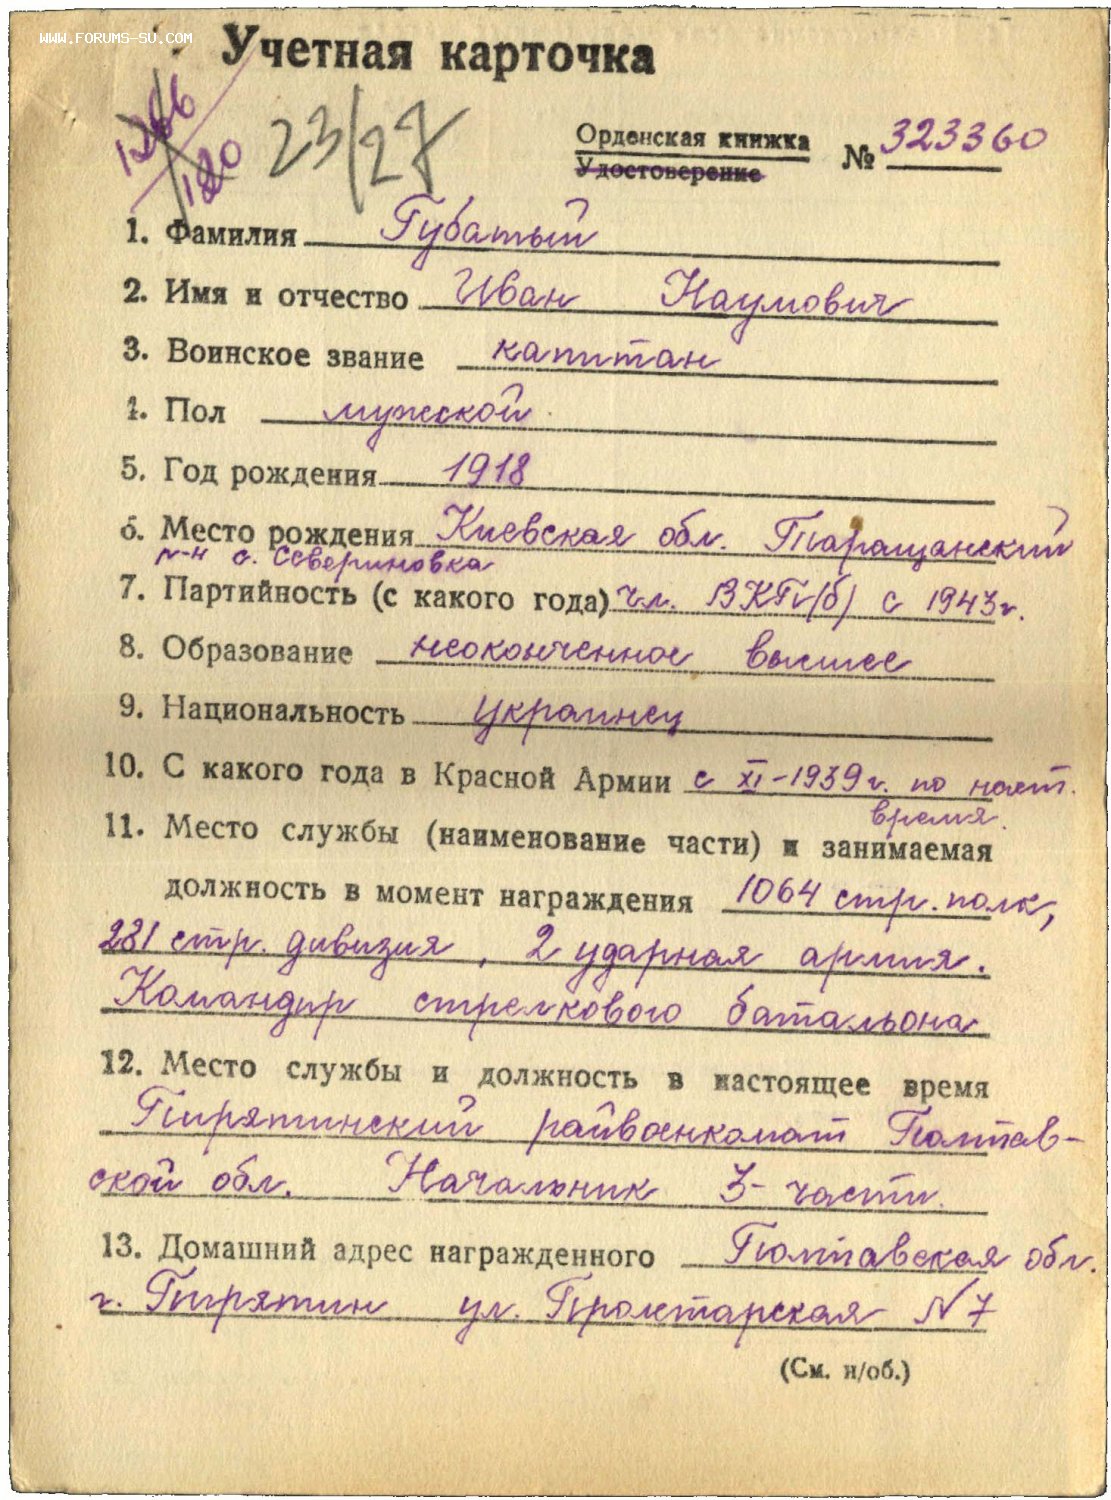 WWW.FORUMS-SU.COM
Учетная карточка
1266
120
23/27
Орденская книжка
Удостоверение
№ 323360
1. Фамилия Губатый
2. Имя и отчество Иван Наумович
3. Воинское звание капитан
4. Пол мужской
5. Год рождения 1918
6. Место рождения Киевская обл. Таращанский
р-н с. Севериновка
7. Партийность (с какого года) чл. ВКП(б) с 1943 г.
8. Образование неоконченное высшее
9. Национальность украинец
10. С какого года в Красной Армии с XI-1939 г. по наст.
время.
11. Место службы (наименование части) и занимаемая
должность в момент награждения 1064 стр. полк,
281 стр. дивизия, 2 ударная армия.
Командир стрелкового батальона
12. Место службы и должность в настоящее время
Пирятинский райвоенкомат Полтав-
ской обл. Начальник 3- части.
13. Домашний адрес награжденного Полтавская обл.
г. Пирятин ул. Пролетарская N 7
(См. н/об.)